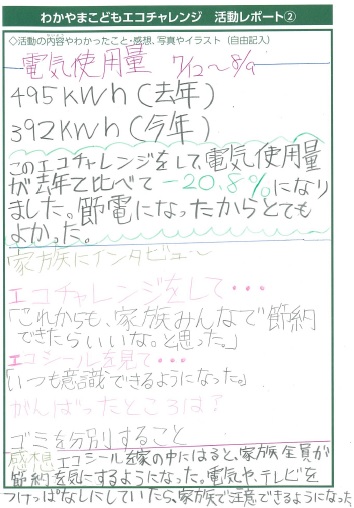 わかやまこどもエコチャレンジ　活動レポート②
◇活動の内容やわかったこと・感想、写真やイラスト（自由記入）
電気使用量 7/12～8/9
495KWh(去年)
392KWh(今年)
このエコチャレンジをして、電気使用量
が去年と比べて-20.8%になり
ました。節電になったからとても
よかった。
家族にインタビュー
エコチャレンジをして・・・
「これからも、家族みんなで節約
できたらいいな。と思った。」
エコシールを見て・・・
「いつも意識できるようになった。」
がんばったところは?
ゴミを分別すること
感想 エコシールを家の中にはると、家族全員が
節約を気にするようになった。電気や、テレビを
つけっぱなしにしていたら、家族で注意できるようになった。